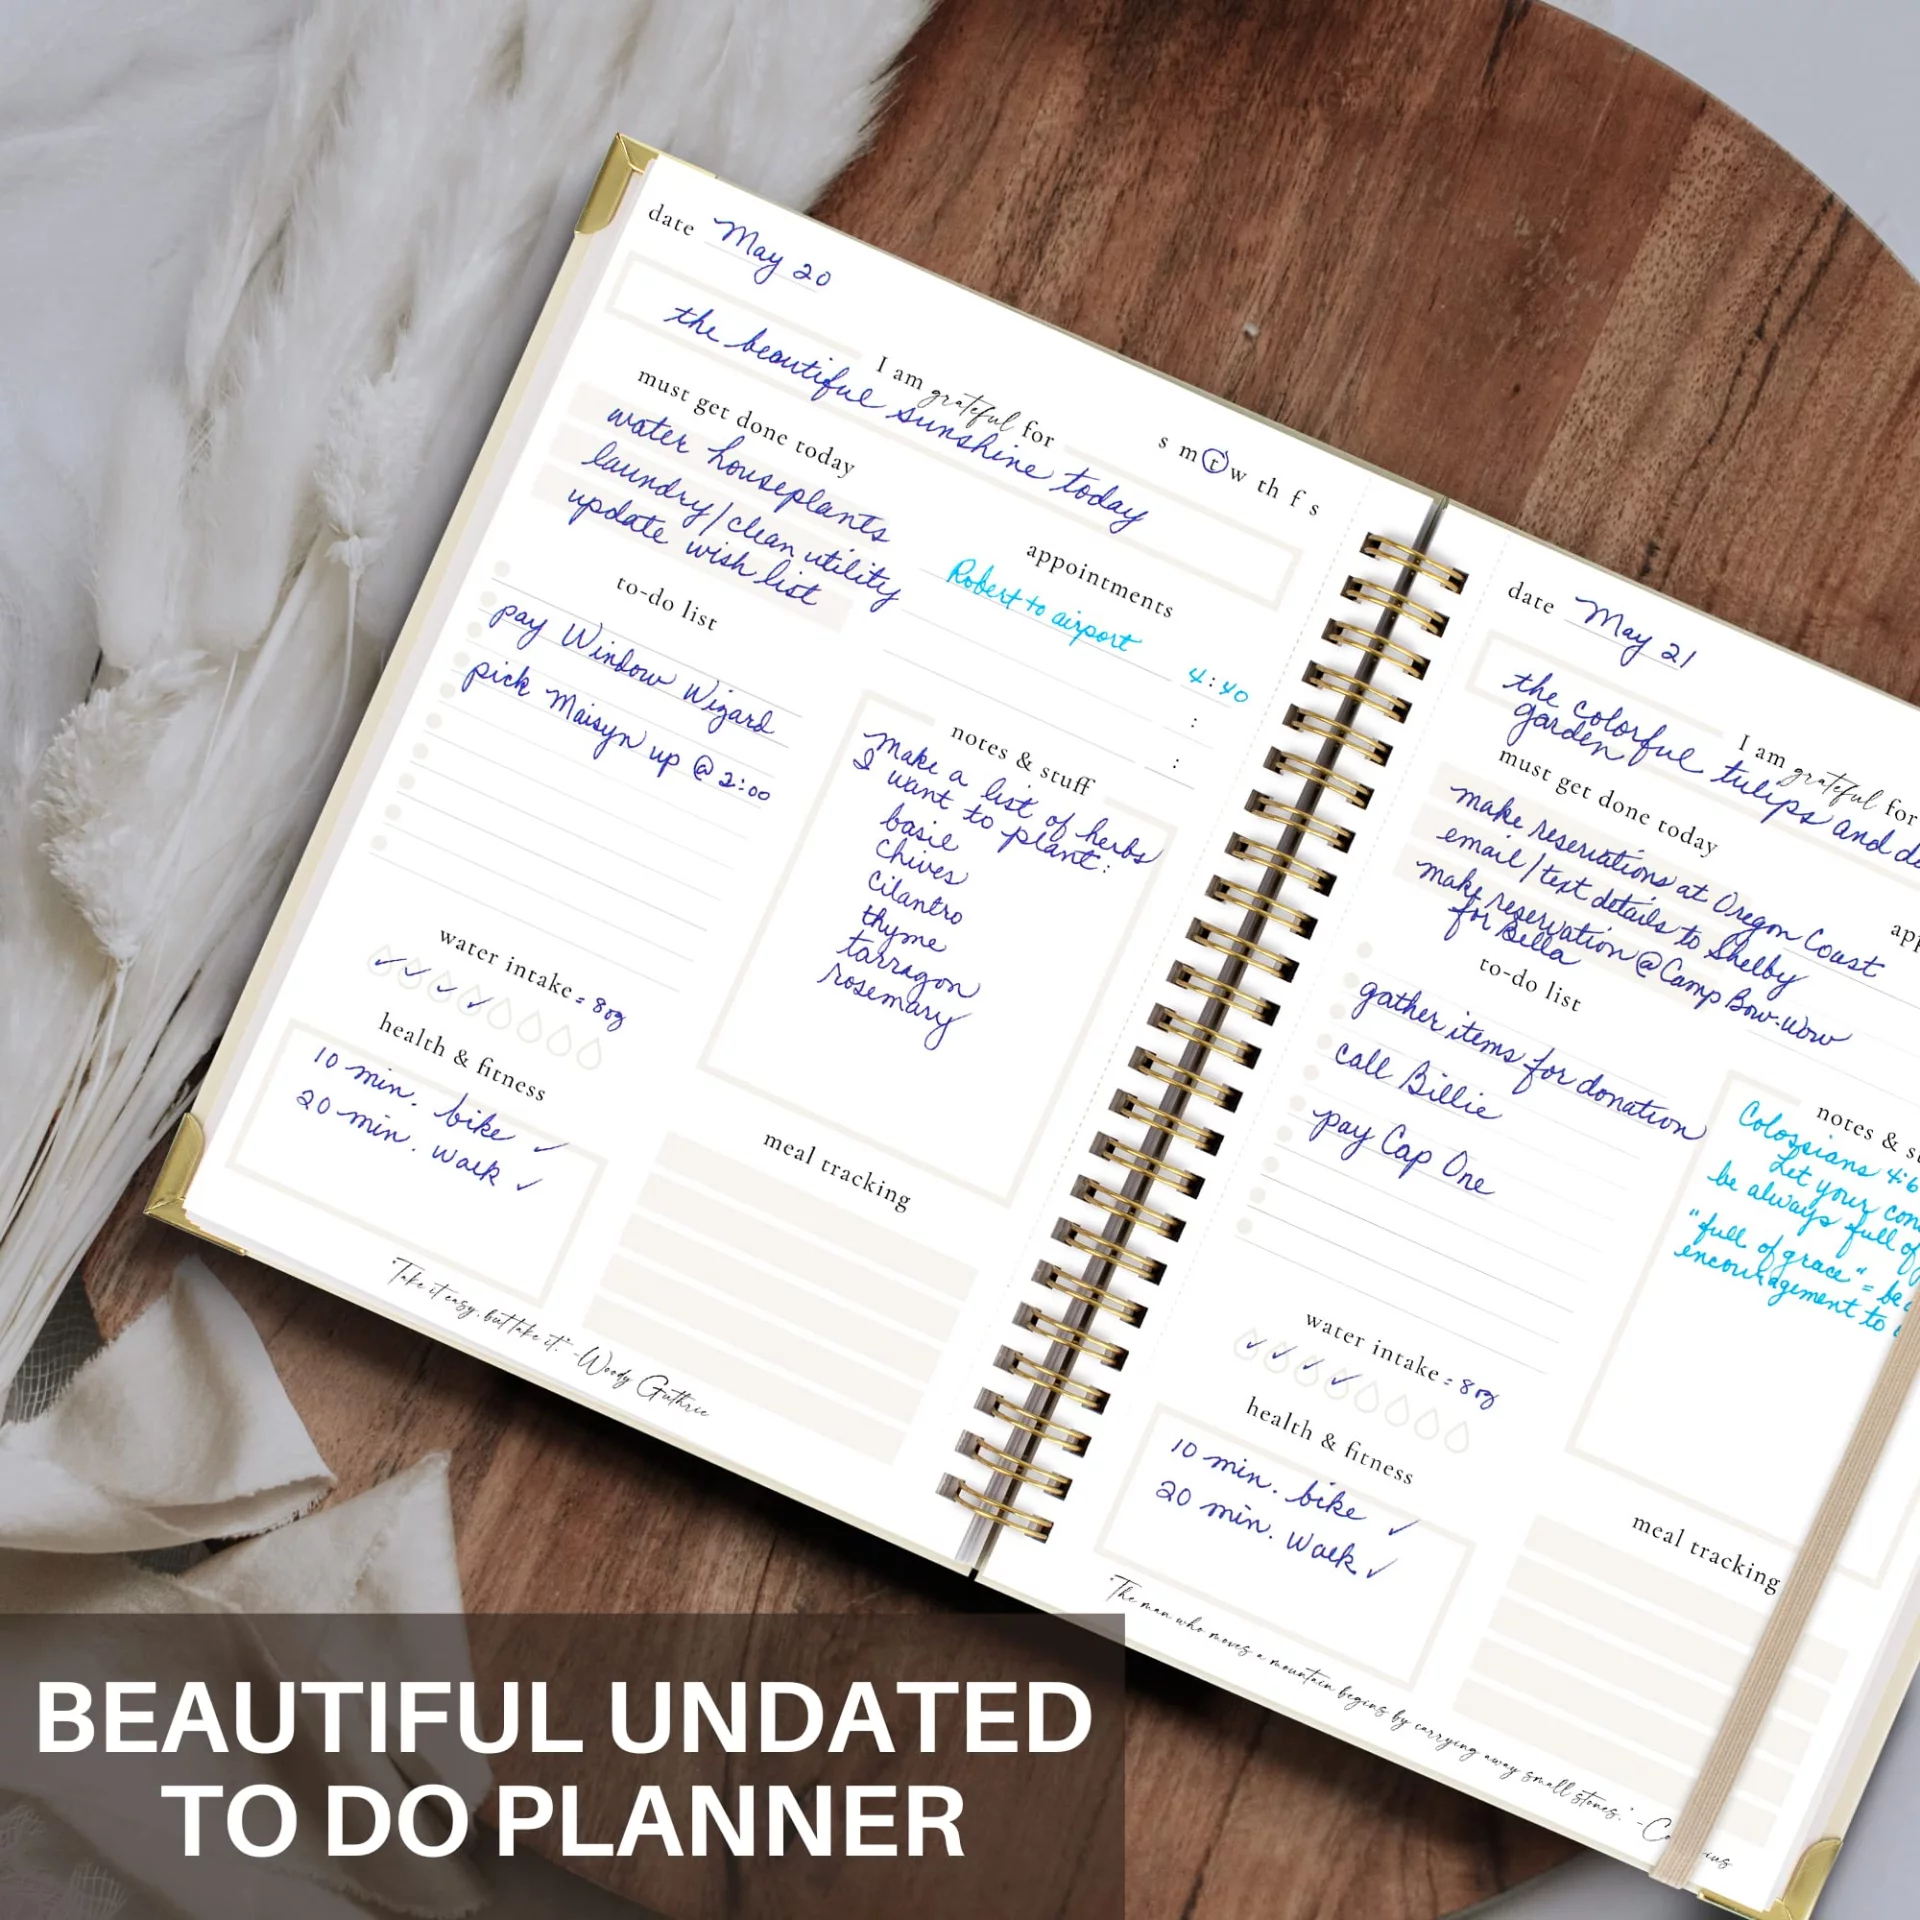 date May 20
I am grateful for
the beautiful sunshine today
s m t w th f s
must get done today
water houseplants
laundry/clean utility
update wish list
appointments
Robert to airport 4:40
:
:
to-do list
pay Window Wizard
pick Maisyn up @ 2:00
notes & stuff
make a list of herbs
I want to plant:
basil
chives
cilantro
thyme
tarragon
rosemary
water intake = 8oz
health & fitness
10 min. bike ✓
20 min. walk ✓
meal tracking
"Take it easy, but take it." -Woody Guthrie
date May 21
I am grateful for
the colorful tulips and
garden
must get done today
make reservations at Oregon Coast
email/text details to Shelby
make reservation @ Camp Bow-Wow
for Bella
to-do list
gather items for donation
call Billie
pay Cap One
notes &
Colossians 4:6
Let your
be always full of
"full of grace" = be
encouragement to
water intake = 8oz
health & fitness
10 min. bike ✓
20 min. walk ✓
meal tracking
"The man who moves a mountain begins by carrying away small stones." -
BEAUTIFUL UNDATED
TO DO PLANNER